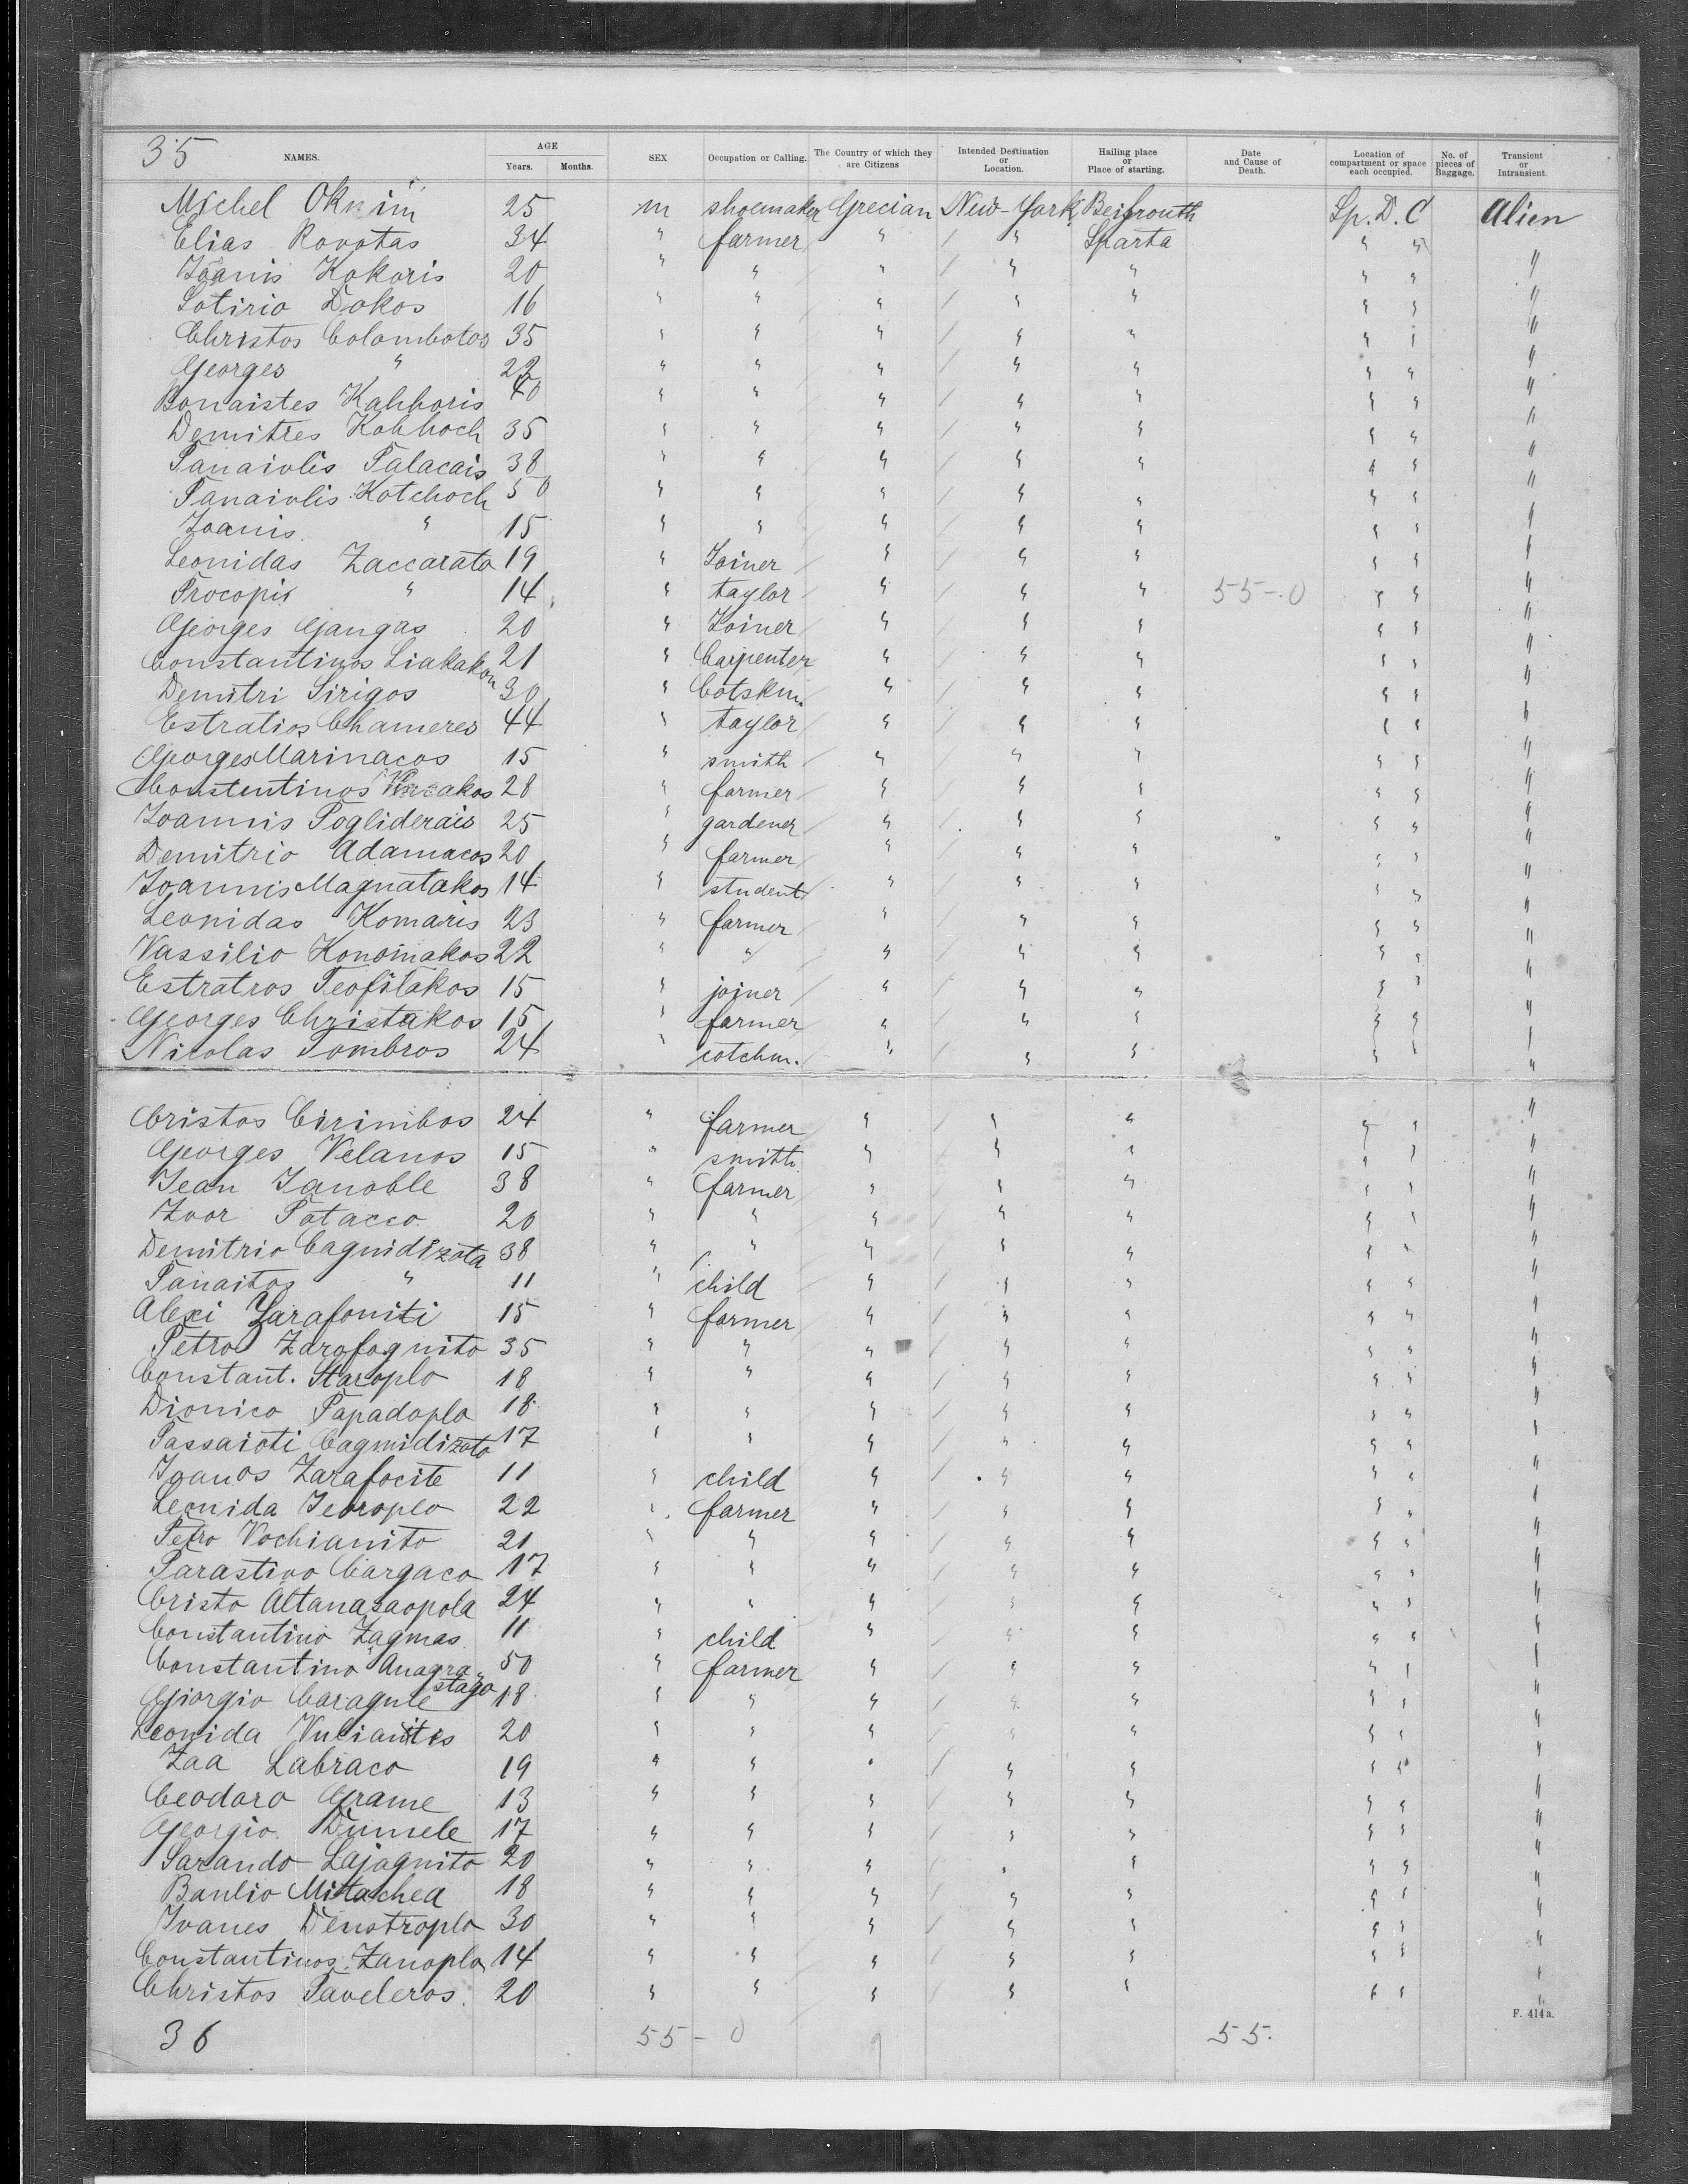 35
NAMES. AGE Years. Months. SEX Occupation or Calling. The Country of which they are Citizens Intended Destination or Location. Hailing place or Place of starting. Date and Cause of Death. Location of compartment or space each occupied. No. of pieces of Baggage. Transient or Intransient.
Michel Oknim 25 m shoemaker Grecian New-York Beifrouth Sp. D. C Alien
Elias Rovotas 34 " farmer " / " Sparta " " "
Joanis Kokoris 20 " " " / " " " " "
Sotirio Dokos 16 " " " / " " " " "
Christos Colombotos 35 " " " / " " " " "
Georges " 22 " " " / " " " " "
Bonaistes Kahhoris 40 " " " / " " " " "
Demitres Kohhoch 35 " " " / " " " " "
Panaiolis Palacais 38 " " " / " " " " "
Panaiolis Kotchoch 50 " " " / " " " " "
Joanis " 15 " " " / " " " " "
Leonidas Zaccarato 19 " Joiner " / " " " " "
Procopis " 14 " taylor " / " " 55-0 " " "
Georges Gangas 20 " Joiner " / " " " " "
Constantinos Liakakon 21 " Carpenter " / " " " " "
Demitri Sirigos 30 " Cotskm. " / " " " " "
Estratios Chameres 44 " taylor " / " " " " "
Georges Marinacos 15 " smith " / " " " " "
Constentinos 28 " farmer " / " " " " "
Joannis Pogliderais 25 " gardener " / " " " " "
Demitrio Adamacos 20 " farmer " / " " " " "
Joannis Magnatakos 14 " student " / " " " " "
Leonidas Komaris 23 " farmer " / " " " " "
Vassilio Konomakos 22 " " " / " " " " "
Estratros Teofilakos 15 " joiner " / " " " " "
Georges Christakos 15 " farmer " / " " " " "
Nicolas Tombros 24 " cotchm. " / " " " " "
Cristos Cirimbos 24 " farmer " / " " " " "
Georges Velanos 15 " smith " / " " " " "
Jean Janoble 38 " farmer " / " " " " "
Zoor Patacco 20 " " " / " " " " "
Demitrio Cagnidizota 38 " " " / " " " " "
Panaitos " 11 " child " / " " " " "
Alexi Zarafoniti 15 " farmer " / " " " " "
Petro Zarofognito 35 " " " / " " " " "
Constant. Staroplo 18 " " " / " " " " "
Dionico Papadoplo 18 " " " / " " " " "
Passaioti Cagmidizoto 17 " " " / " " " " "
Joanos Zarafocite 11 " child " / " " " " "
Leonida Jeoroplo 22 " farmer " / " " " " "
Petro Vochianito 21 " " " / " " " " "
Parastivo Cargaco 17 " " " / " " " " "
Cristo Altanasaopola 24 " " " / " " " " "
Constantino Zagmas 11 " child " / " " " " "
Constantino Anagra-stago 50 " farmer " / " " " " "
Giorgio Caragule 18 " " " / " " " " "
Leonida Vulianitis 20 " " " / " " " " "
Zaa Labraco 19 " " " / " " " " "
Ceodoro Grame 13 " " " / " " " " "
Georgio Dumele 17 " " " / " " " " "
Sarando Lajagnito 20 " " " / " " " " "
Banlio Mitachea 18 " " " / " " " " "
Ivanes Denstroplo 30 " " " / " " " " "
Constantinos Zanoplo 14 " " " / " " " " "
Christos Paveleros 20 " " " / " " " " "
F. 414a.
36 55-0 55.